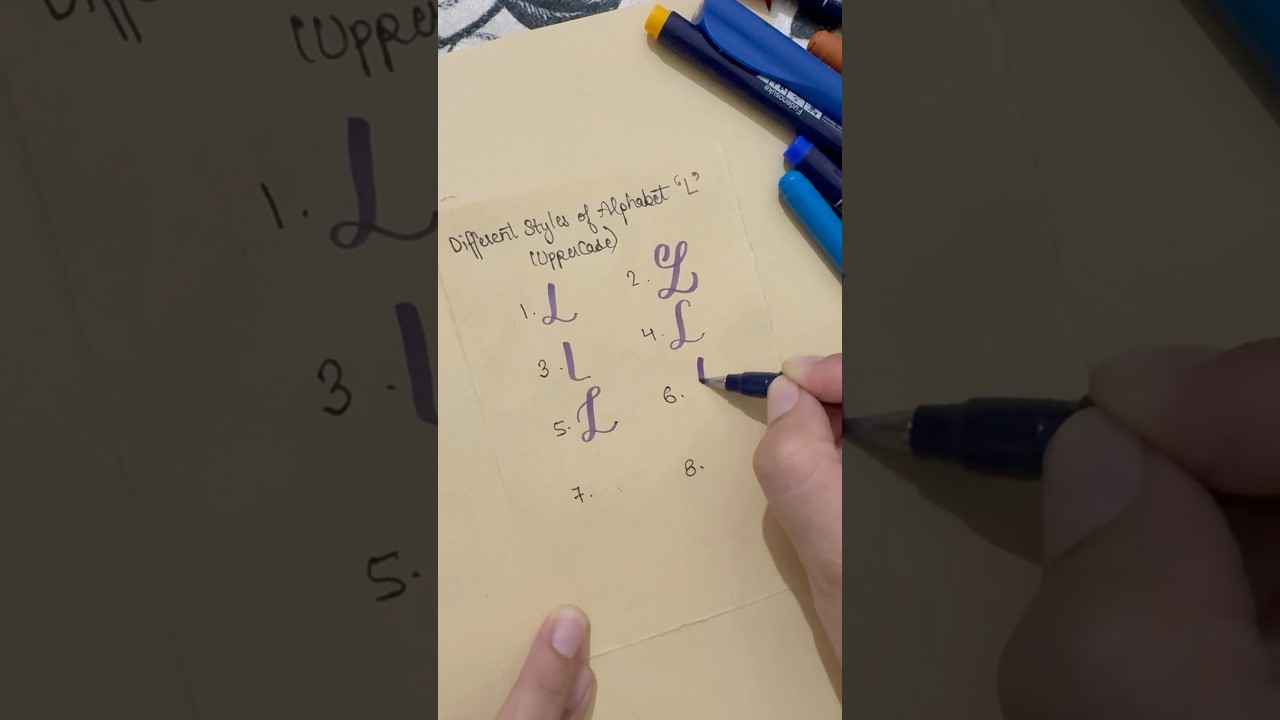 Different Styles of Alphabet "L"
(UpperCase)
1. L
2. L
3. L
4. L
5. L
6.
7.
8.
Fudenosuke